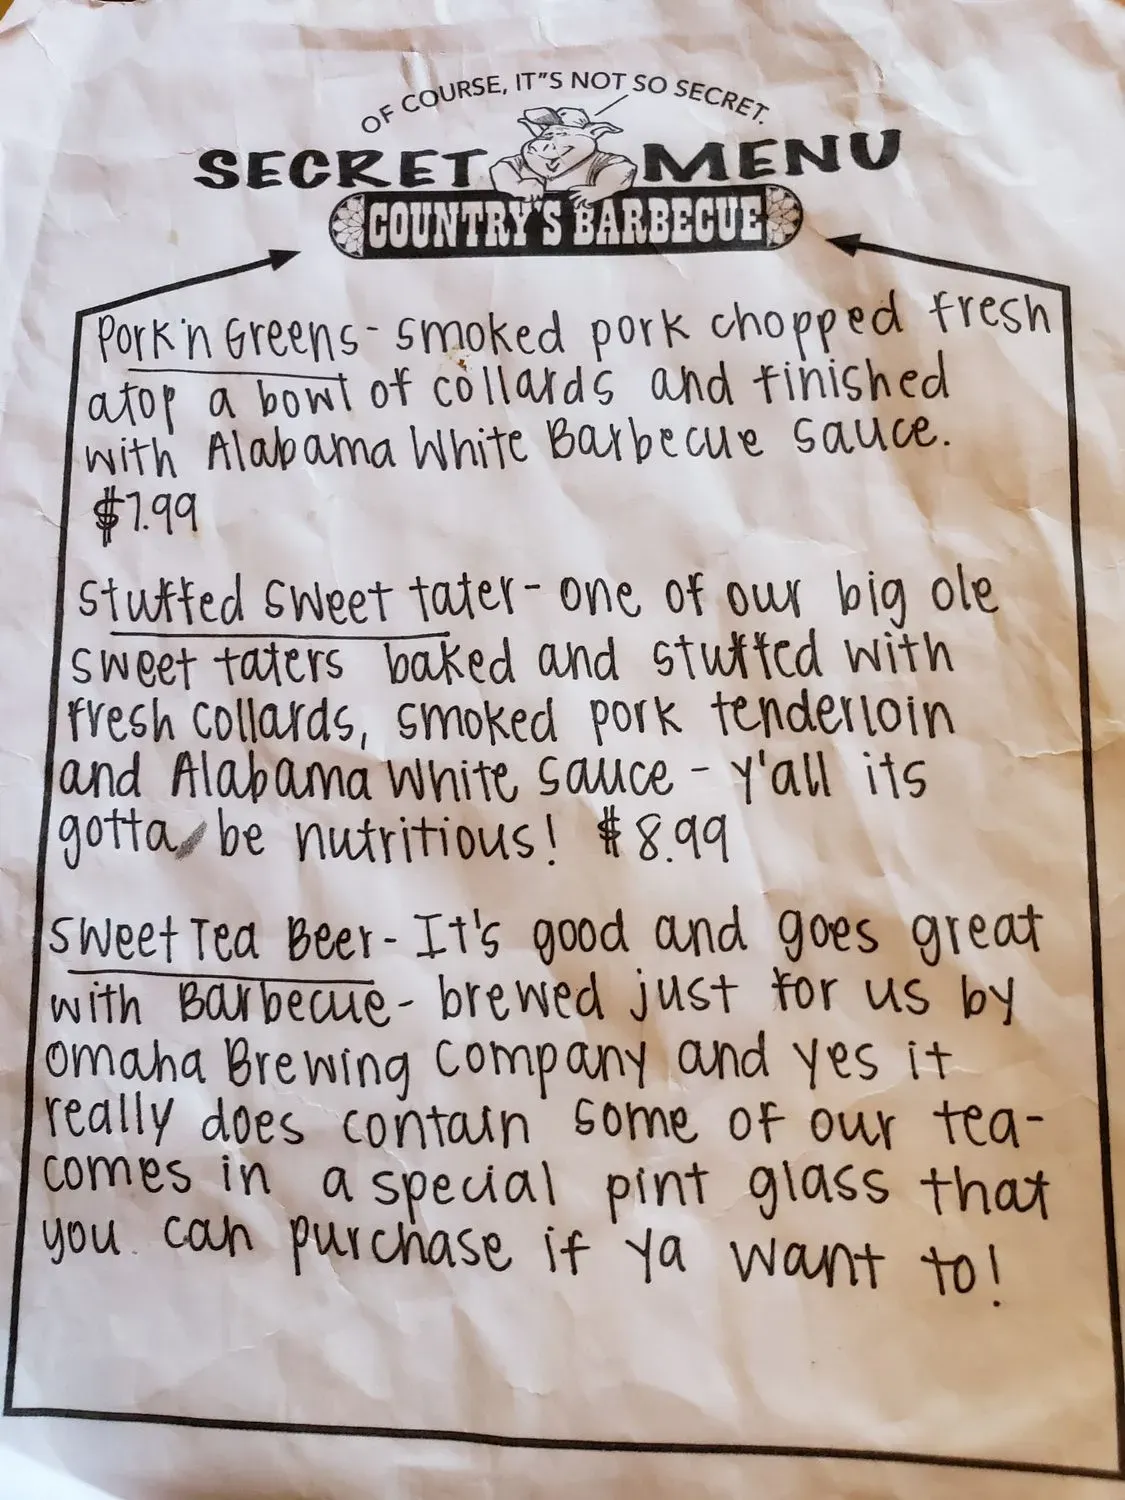 OF COURSE, IT"S NOT SO SECRET.
SECRET MENU
COUNTRY'S BARBECUE
Pork 'n Greens - smoked pork chopped fresh
atop a bowl of collards and finished
with Alabama White Barbecue sauce.
$7.99
Stuffed sweet tater - one of our big ole
sweet taters baked and stuffed with
fresh collards, smoked pork tenderloin
and Alabama White sauce - y'all its
gotta be nutritious! $8.99
Sweet Tea Beer - It's good and goes great
with Barbecue - brewed just for us by
Omaha Brewing Company and yes it
really does contain some of our tea -
comes in a special pint glass that
you can purchase if ya want to!